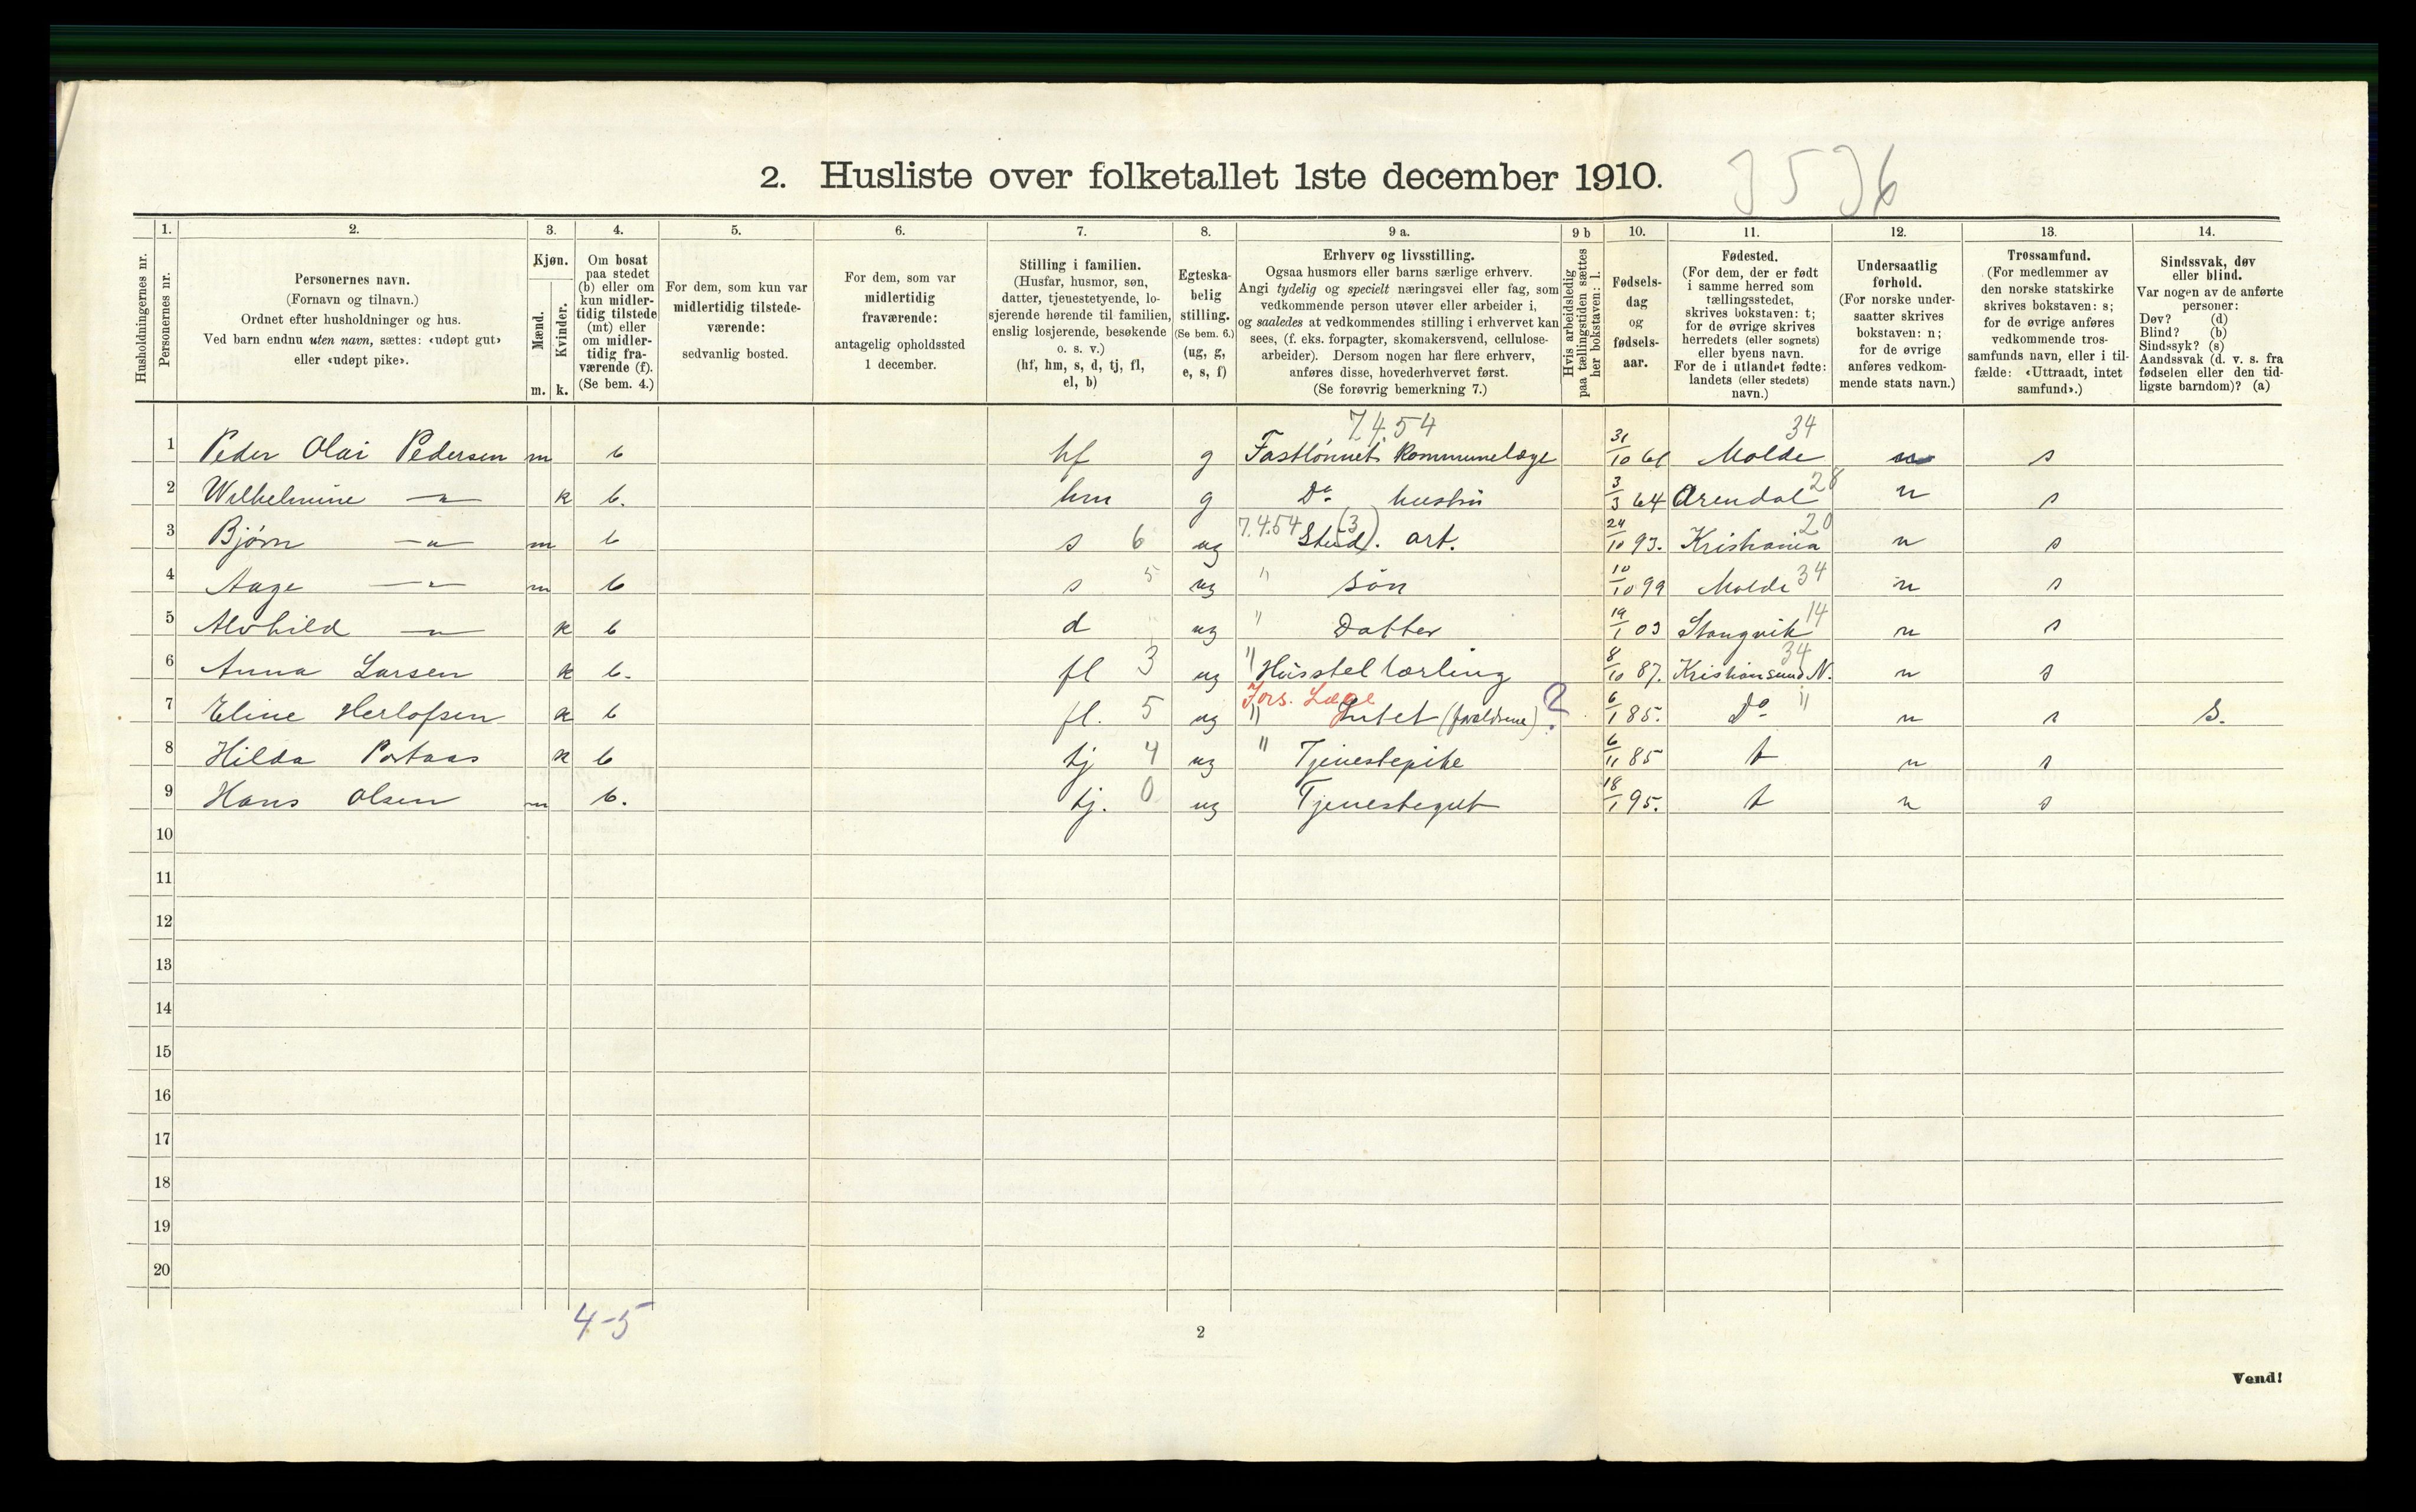 2. Husliste over folketallet 1ste december 1910.
3536
Husholdningernes nr.
1. Personernes nr.
2. Personernes navn. (Fornavn og tilnavn.) Ordnet efter husholdninger og hus. Ved barn endnu uten navn, sættes: «udøpt gut» eller «udøpt pike».
3. Kjøn. Mænd. m. Kvinder. k.
4. Om bosat paa stedet (b) eller om kun midlertidig tilstede (mt) eller om midlertidig fraværende (f). (Se bem. 4.)
5. For dem, som kun var midlertidig tilstedeværende: sedvanlig bosted.
6. For dem, som var midlertidig fraværende: antagelig opholdssted 1 december.
7. Stilling i familien. (Husfar, husmor, søn, datter, tjenestetyende, losjerende hørende til familien, enslig losjerende, besøkende o. s. v.) (hf, hm, s, d, tj, fl, el, b)
8. Egteskabelig stilling. (Se bem. 6.) (ug, g, e, s, f)
9 a. Erhverv og livsstilling. Ogsaa husmors eller barns særlige erhverv. Angi tydelig og specielt næringsvei eller fag, som vedkommende person utøver eller arbeider i, og saaledes at vedkommendes stilling i erhvervet kan sees, (f. eks. forpagter, skomakersvend, cellulosearbeider). Dersom nogen har flere erhverv, anføres disse, hovederhvervet først. (Se forøvrig bemerkning 7.)
9 b Hvis arbeidsledig paa tællingstiden sættes her bokstaven: l.
10. Fødselsdag og fødselsaar.
11. Fødested. (For dem, der er født i samme herred som tællingsstedet, skrives bokstaven: t; for de øvrige skrives herredets (eller sognets) eller byens navn. For de i utlandet fødte: landets (eller stedets) navn.)
12. Undersaatlig forhold. (For norske undersaatter skrives bokstaven: n; for de øvrige anføres vedkommende stats navn.)
13. Trossamfund. (For medlemmer av den norske statskirke skrives bokstaven: s; for de øvrige anføres vedkommende trossamfunds navn, eller i tilfælde: «Uttraadt, intet samfund».)
14. Sindssvak, døv eller blind. Var nogen av de anførte personer: Døv? (d) Blind? (b) Sindssyk? (s) Aandssvak (d. v. s. fra fødselen eller den tidligste barndom)? (a)
7.4.54 34
1 Peder Olai Pedersen m b hf g Fastlønnet Kommunelæge 31/10 61 Molde n s
2 Wilhelmine —"— k b. hm g Do hustru 3/3 64 Arendal 28 n s
3 Bjørn —"— m b s 6 ug 7.4.54 (3) Stud. art. 24/10 93. Kristiania 20 n s
4 Aage —"— m b s 5 ug " søn 10/10 99 Molde 34 n s
5 Alvhild —"— k b d ug " Datter 19/1 03 Stangvik 14 n s
6 Anna Larsen k b. fl 3 ug " Husstel lærling 8/10 87. Kristiansund N. 34 n s
Fors. Læge
7 Eline Herlofsen k b fl. 5 ug " Intet (forældrene) ? 6/1 85. Do " n s S.
8 Hilda Portaas k b tj 4 ug " Tjenestepike 6/11 85 t n s
9 Hans Olsen m b. tj. 0 ug Tjenestegut 18/1 95. t n s
10
11
12
13
14
15
16
17
18
19
20
4-5
2
Vend!